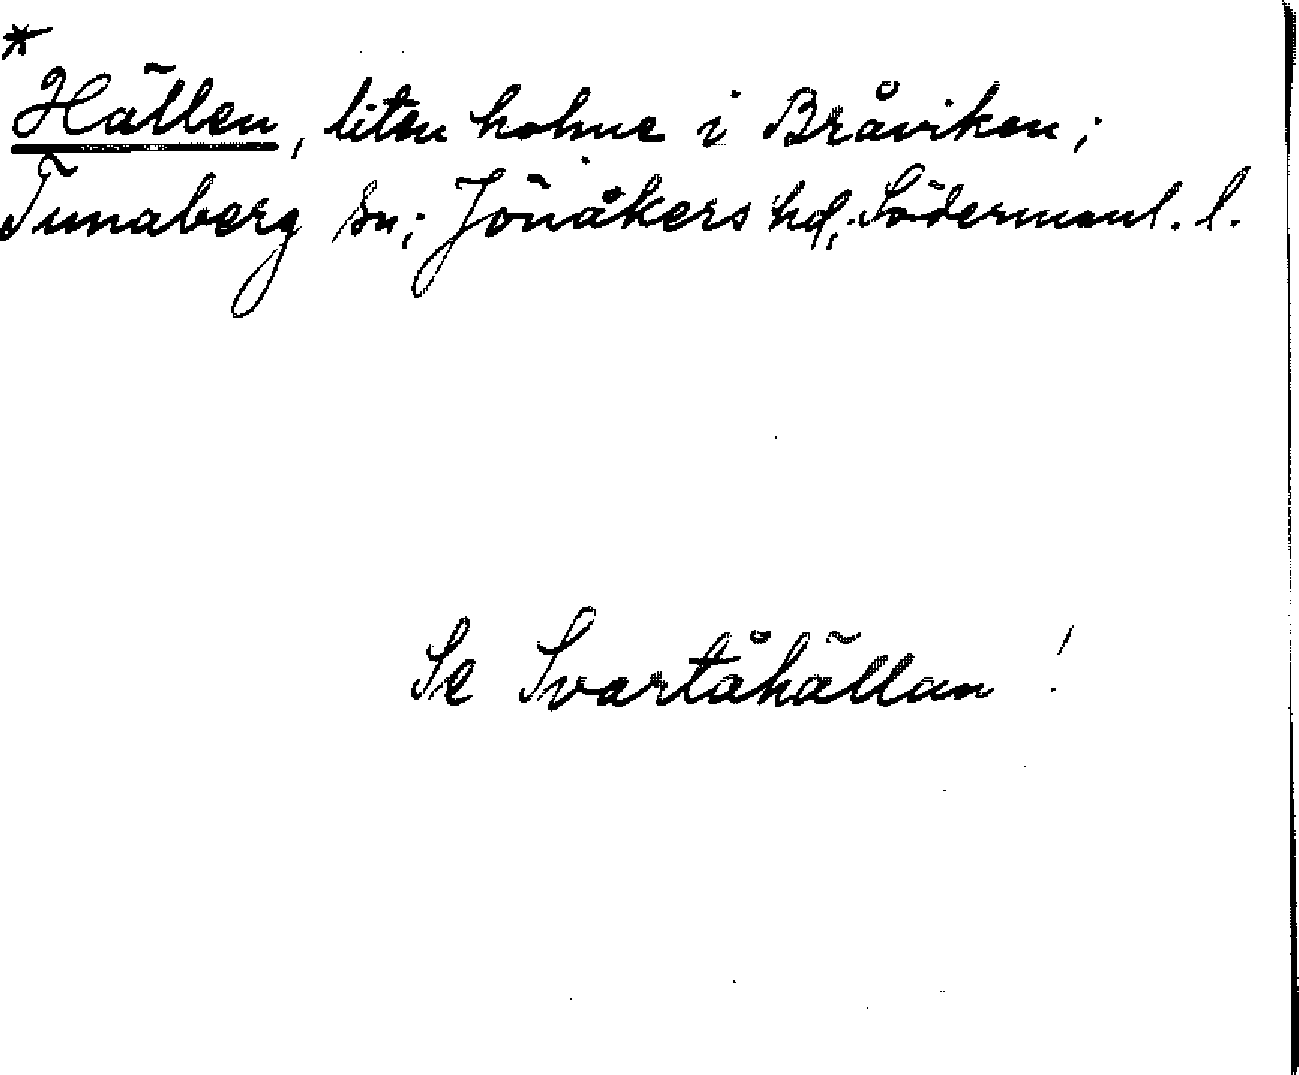 *
Hällen, liten holme i Bråviken;
Tunaberg sn; Jönåkers hd, Södermanl. l.
Se Svartåhällan !